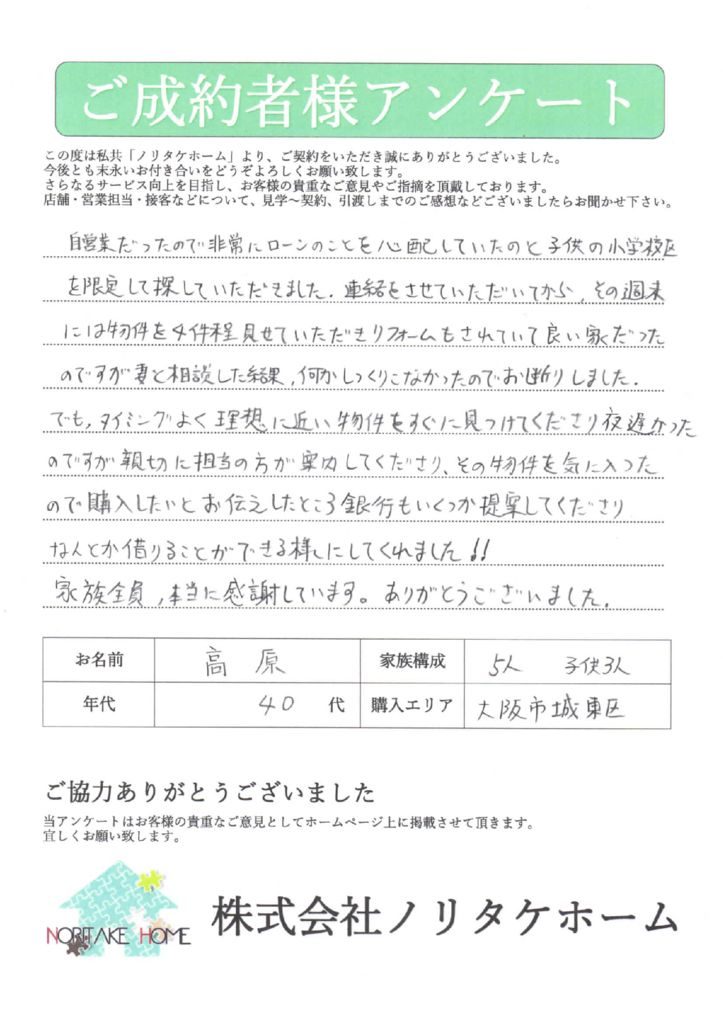 ご成約者様アンケート
この度は私共「ノリタケホーム」より、ご契約をいただき誠にありがとうございました。
今後とも末永いお付き合いをどうぞよろしくお願い致します。
さらなるサービス向上を目指し、お客様の貴重なご意見やご指摘を頂戴しております。
店舗・営業担当・接客などについて、見学〜契約、引渡しまでのご感想などございましたらお聞かせ下さい。
自営業だったので非常にローンのことを心配していたのと子供の小学校区
を限定して探していただきました。連絡をさせていただいてから、その週末
には物件を4件程見せていただきリフォームもされていて良い家だった
のですが妻と相談した結果、何かしっくりこなかったのでお断りしました。
でも、タイミングよく理想に近い物件をすぐに見つけてくださり夜遅かった
のですが親切に担当の方が案内してくださり、その物件を気に入った
ので購入したいとお伝えしたところ銀行もいくつか提案してくださり
なんとか借りることができる様にしてくれました!!
家族全員、本当に感謝しています。ありがとうございました。
お名前 高原 家族構成 5人 子供3人
年代 40 代 購入エリア 大阪市城東区
ご協力ありがとうございました
当アンケートはお客様の貴重なご意見としてホームページ上に掲載させて頂きます。
宜しくお願い致します。
NORITAKE HOME 株式会社ノリタケホーム